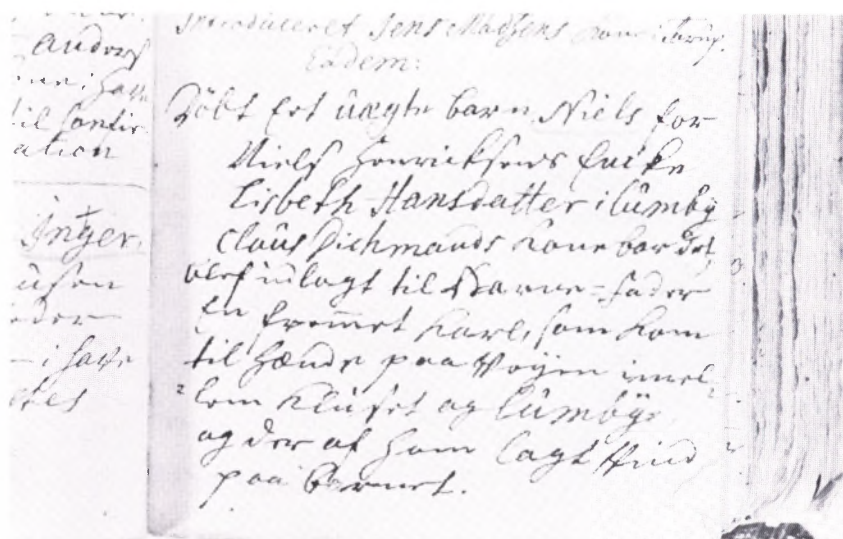 Anders
til
ation
Inger
i Have
Introduceret Jens Madsens Kone i Tarup.
Eadem:
Döbt Et uægte barn Niels for
Niels Henricksens Encke
Lisbeth Hansdatter i Lumbÿ
Claus Dichmands Kone bar det,
blef udlagt til Barne=fader
En fremmet Karl, som kom
til hænde paa Veyen imel=
lem Kluset og Lumbÿe
og der af ham lagt Haand
paa barnet.